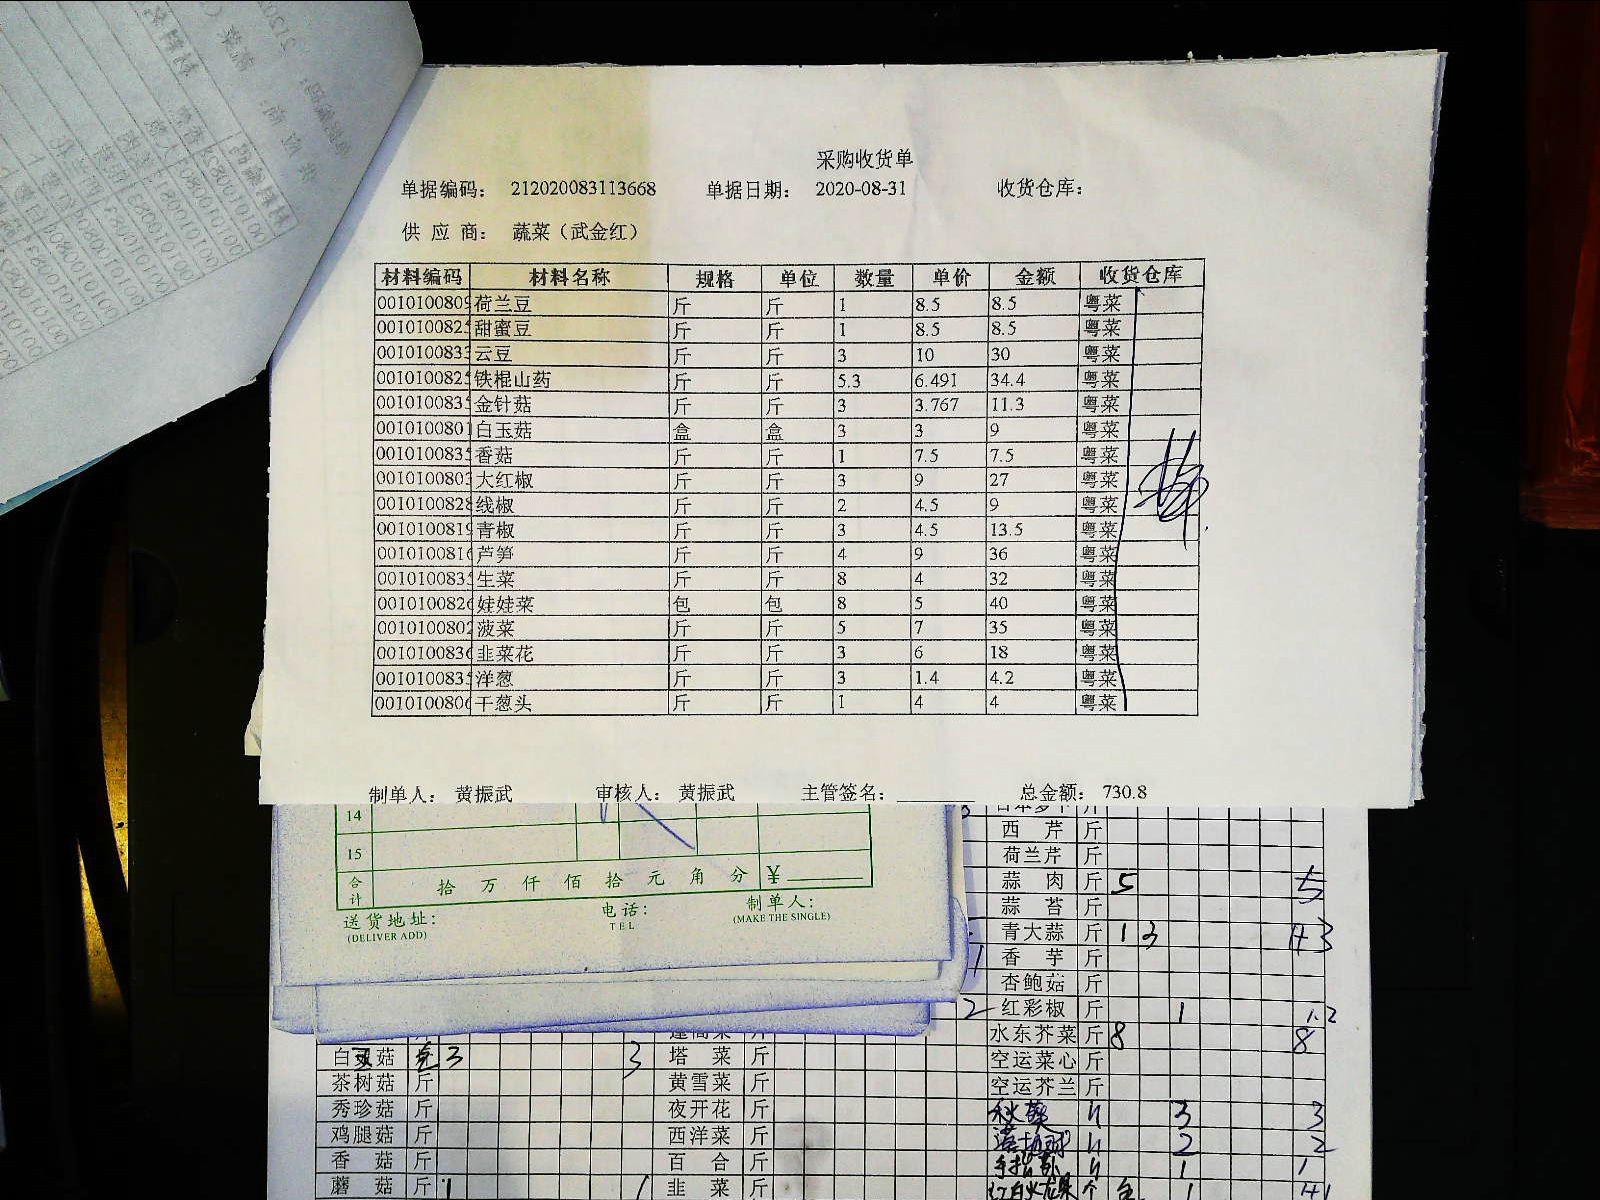 采购收货单
单据编码： 212020083113668 单据日期： 2020-08-31 收货仓库：
供 应 商： 蔬菜（武金红）
材料编码 材料名称 规格 单位 数量 单价 金额 收货仓库
0010100809 荷兰豆 斤 斤 1 8.5 8.5 粤菜
001010082 甜蜜豆 斤 斤 1 8.5 8.5 粤菜
001010083 云豆 斤 斤 3 10 30 粤菜
001010082 铁棍山药 斤 斤 5.3 6.491 34.4 粤菜
001010083 金针菇 斤 斤 3 3.767 11.3 粤菜
001010080 白玉菇 盒 盒 3 3 9 粤菜
001010083 香菇 斤 斤 1 7.5 7.5 粤菜
001010080 大红椒 斤 斤 3 9 27 粤菜
0010100828 线椒 斤 斤 2 4.5 9 粤菜
0010100819 青椒 斤 斤 3 4.5 13.5 粤菜
001010081 芦笋 斤 斤 4 9 36 粤菜
001010083 生菜 斤 斤 8 4 32 粤菜
001010082 娃娃菜 包 包 8 5 40 粤菜
001010080 菠菜 斤 斤 5 7 35 粤菜
001010083 韭菜花 斤 斤 3 6 18 粤菜
001010083 洋葱 斤 斤 3 1.4 4.2 粤菜
001010080 干葱头 斤 斤 1 4 4 粤菜
制单人： 黄振武 审核人： 黄振武 主管签名： 总金额： 730.8
14
15
合计 拾 万 仟 佰 拾 元 角 分 ¥
送货地址： 电话： 制单人：
(DELIVER ADD) TEL (MAKE THE SINGLE)
西 芹 斤
荷兰芹 斤
蒜 肉 斤 5 5
蒜 苔 斤
青大蒜 斤 1 3
香 芋 斤
杏鲍菇 斤
2 红彩椒 斤 1 1.2
水东芥菜 斤 8 8
白玉菇 3 3 塔 菜 斤 空运菜心 斤
茶树菇 斤 黄雪菜 斤 空运芥兰 斤
秀珍菇 斤 夜开花 斤 秋葵 3 3
鸡腿菇 斤 西洋菜 斤 2 2
香 菇 斤 百 合 斤 1 1
蘑 菇 斤 1 1 韭 菜 斤